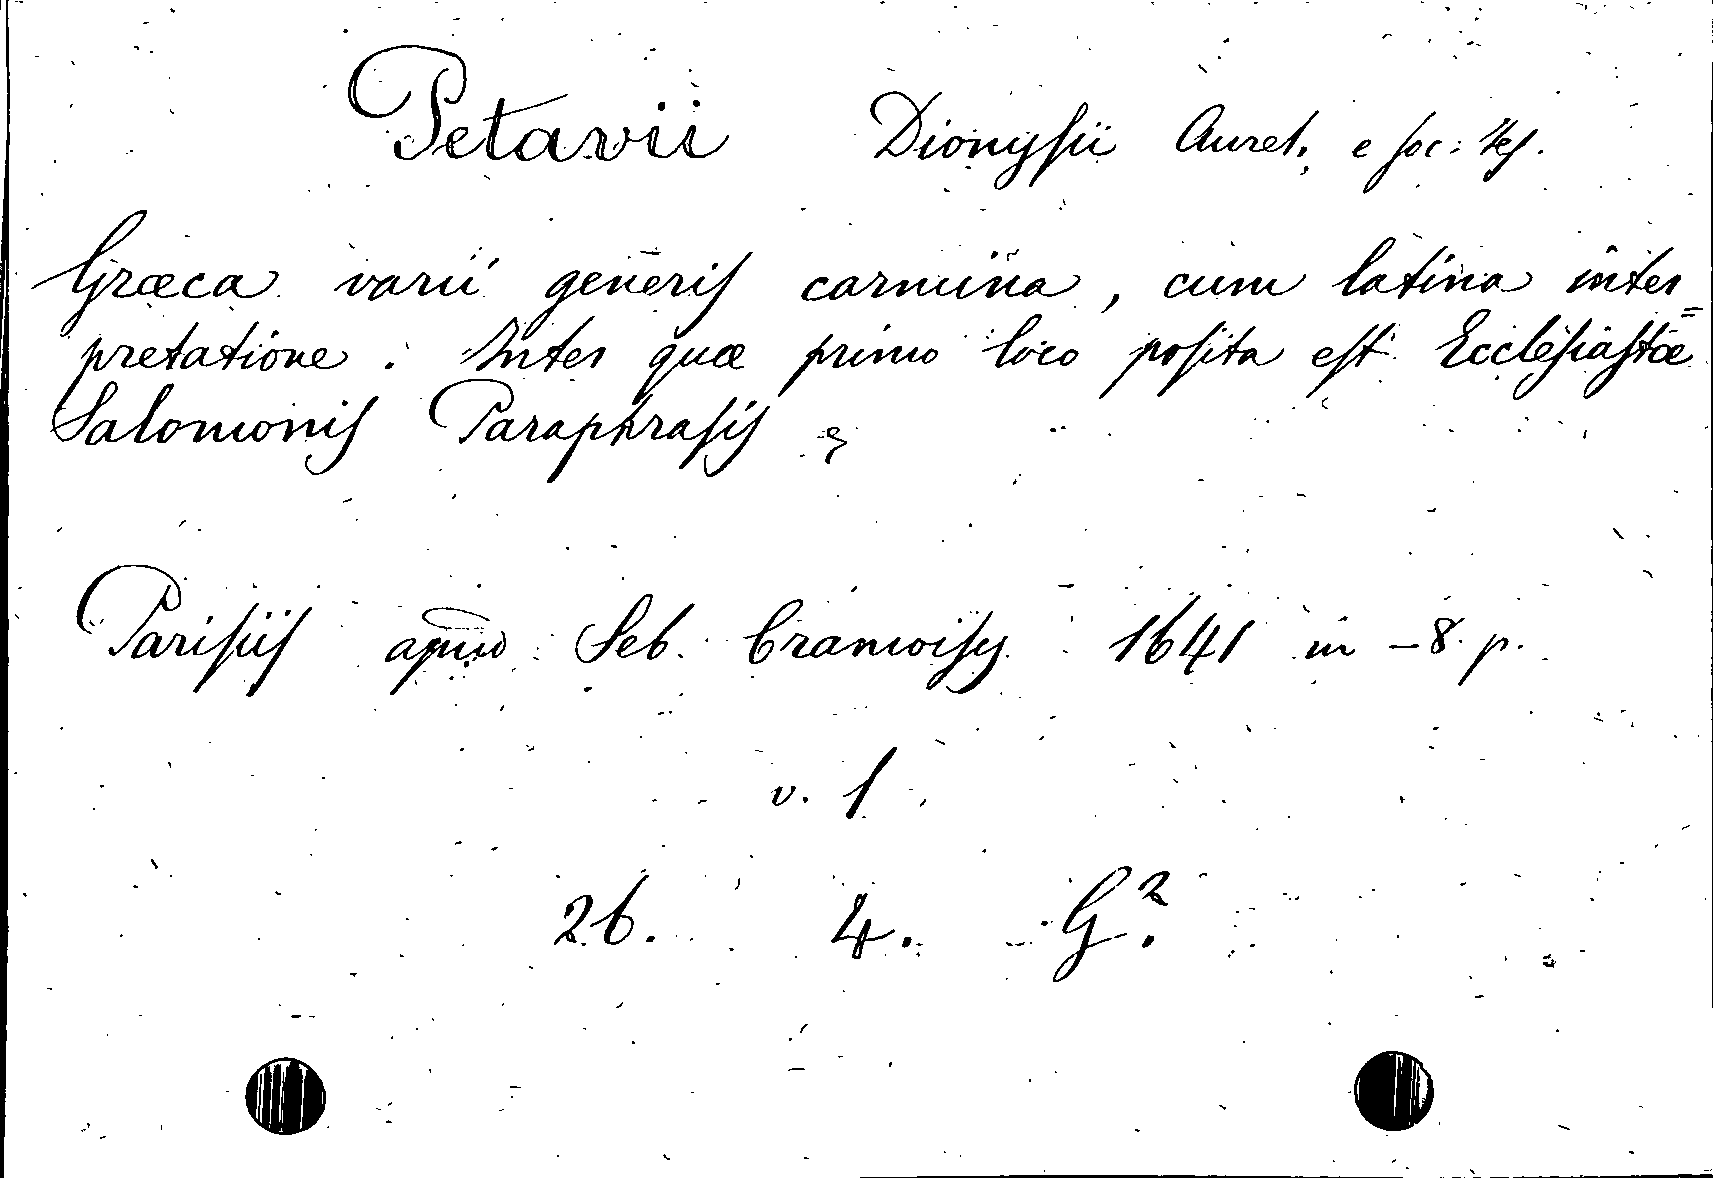 Petavii Dionysii Aurel. e soc: Jes.
Græca varii generis carmina, cum latina inter=
pretatione. Inter quæ primo loco posita est Ecclesiastæ
Salomonis Paraphrasis
Parisiis apud Seb. Cramoisy 1641 in -8. p.
v. 1
26. 4. G².